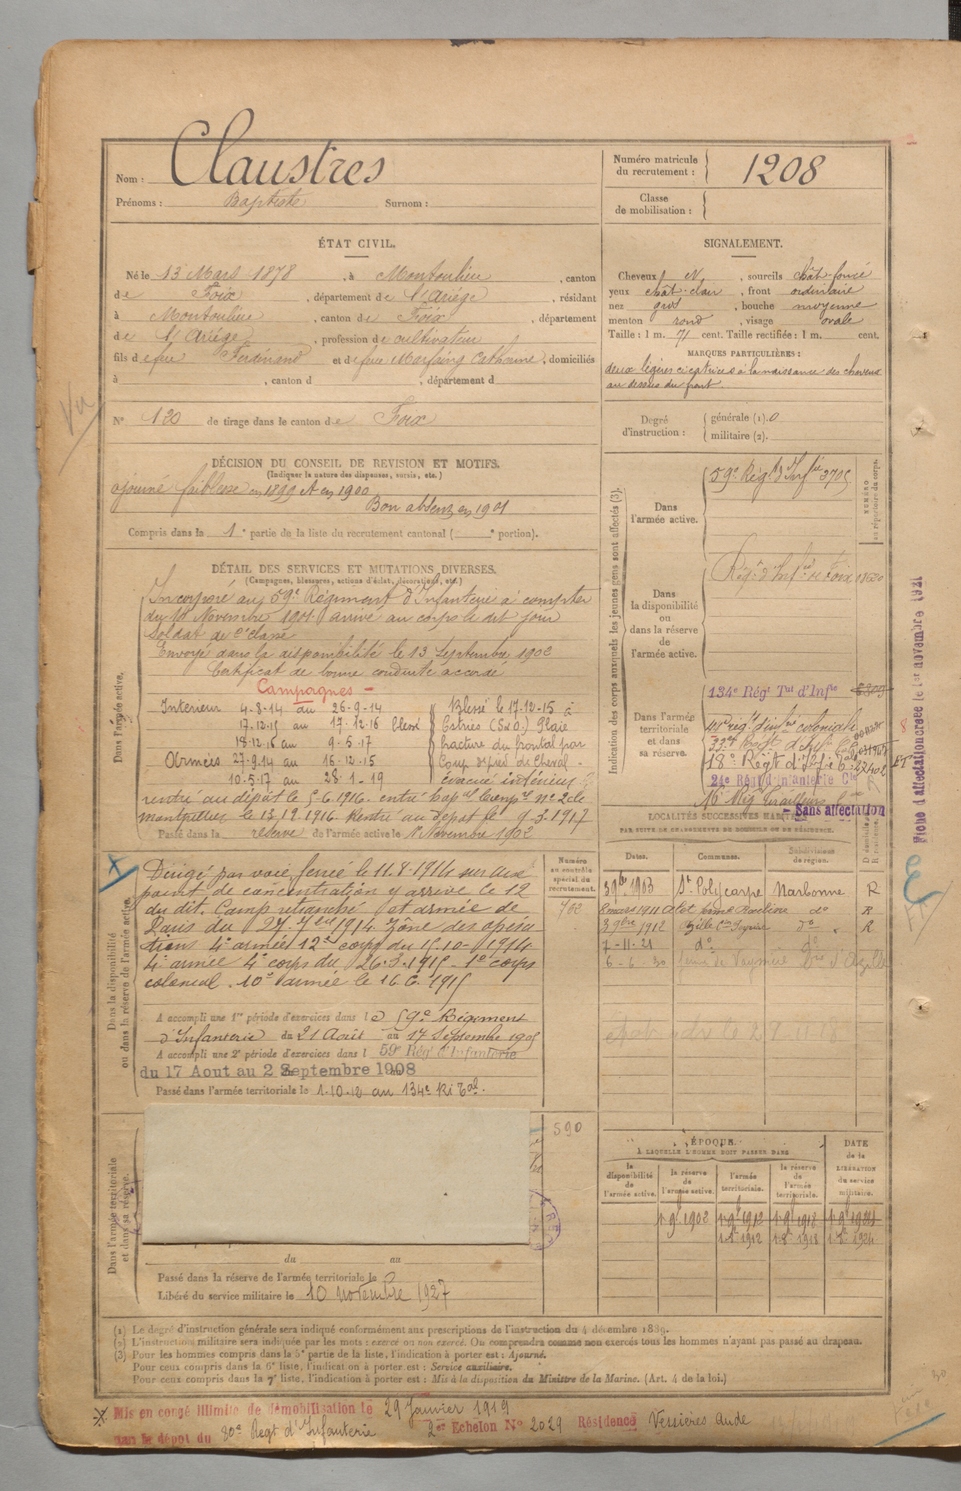 Nom : Claustres
Prénoms : Baptiste Surnom :
Numéro matricule du recrutement : 1208
Classe de mobilisation :
ÉTAT CIVIL.
Né le 13 Mars 1878, à Montoulieu, canton
de Foix, département de l'Ariège, résidant
à Montoulieu, canton de Foix, département
de l'Ariège, profession de cultivateur
fils de feu Ferdinand et de feue Marfaing Catherine, domiciliés
à , canton d , département d
Vu
N° 120 de tirage dans le canton de Foix
SIGNALEMENT.
Cheveux N, sourcils chât-foncé
yeux chât-clair, front ordinaire
nez gros, bouche moyenne
menton rond, visage ovale
Taille : 1 m. 71 cent. Taille rectifiée : 1 m. cent.
MARQUES PARTICULIÈRES :
deux légères cicatrices à la naissance des cheveux
au dessus du front
Degré d'instruction : générale (1). 0
militaire (2).
DÉCISION DU CONSEIL DE REVISION ET MOTIFS.
(Indiquer la nature des dispenses, sursis, etc.)
ajourné faiblesse en 1899 et en 1900
Bon absent en 1901
Compris dans la 1e partie de la liste du recrutement cantonal ( e portion).
DÉTAIL DES SERVICES ET MUTATIONS DIVERSES.
(Campagnes, blessures, actions d'éclat, décorations, etc.)
Dans l'armée active.
Incorporé au 59e Régiment d'Infanterie à compter
du 16 Novembre 1901 arrivé au corps le dit jour
Soldat de 2e classe
Envoyé dans la disponibilité le 13 Septembre 1902
Certificat de bonne conduite accordé
Campagnes -
Intérieur 4-8-14 au 26-9-14
17-12-15 au 17-12-16 blessé
18-12-16 au 9-5-17
Armées 27-9-14 au 16-12-15
10-5-17 au 28-1-19
Blessé le 17-12-15 à
Estrées (S&O) Plaie
fracture du frontal par
Coup de pied de Cheval -
évacué intérieur
rentré au dépôt le 5-6-1916. entré hopal tempre n° 2 de
montpellier le 15.12.1916. Rentré au dépôt le 9-3-1917
Passé dans la réserve de l'armée active le 1 Novembre 1902
Indication des corps auxquels les jeunes gens sont affectés (3).
Dans l'armée active.
59e Régt d'Infie 3705
NUMÉRO au répertoire du corps.
Dans la disponibilité ou dans la réserve de l'armée active.
Régt d'Infie de Foix
Dans l'armée territoriale et dans sa réserve.
134e Régt Tal d'Infie
18e Régt d'Infie
24e Rég d'infanterie Cle
16e Rég Tirailleurs
- Sans affectation
Fiche d'affectation créée le 1er novembre 1921
LOCALITÉS SUCCESSIVES HABITÉES
PAR SUITE DE CHANGEMENTS DE DOMICILE OU DE RÉSIDENCE.
Dates. Communes. Subdivisions de région. D domicile ou R résidence.
3 9bre 1903 St Polycarpe Narbonne R
8 mars 1911 do R
3 9bre 1912 do R
7-11-21 do do
6-6-30
Numéro au contrôle spécial du recrutement.
762
Dans la disponibilité ou dans la réserve de l'armée active.
Dirigé par voie ferrée le 11.8.1914 sur aux
point de concentration y arrive le 12
du dit. Camp retranché et armée de
Paris du 27.7bre 1914. zône des opéra
tions 4e armée 12e corps du 15-10-1914
4e armée 4e corps du 26.3.1915 - 1er corps
colonial. 10e armée le 16.6.1915
A accompli une 1re période d'exercices dans l e 59e Régiment
d'Infanterie du 21 Août au 17 Septembre 1905
A accompli une 2e période d'exercices dans l 59e Régt d'Infanterie
du 17 Aout au 2 Septembre 1908
Passé dans l'armée territoriale le 1-10-12 au 134e Ri Tal.
Dans l'armée territoriale et dans sa réserve.
590
du au
Passé dans la réserve de l'armée territoriale le
Libéré du service militaire le 10 novembre 1927
ÉPOQUE
À LAQUELLE L'HOMME DOIT PASSER DANS
la disponibilité de l'armée active.
la réserve de l'armée active.
l'armée territoriale.
la réserve de l'armée territoriale.
DATE de la LIBÉRATION du service militaire.
1 9e 1902 1 9e 1912 1 9e 1918 1 9e 1924
1 8e 1912 1 8e 1918 1 8e 1924
(1) Le degré d'instruction générale sera indiqué conformément aux prescriptions de l'instruction du 4 décembre 1889.
(2) L'instruction militaire sera indiquée par les mots : exercé ou non exercé. On comprendra comme non exercés tous les hommes n'ayant pas passé au drapeau.
(3) Pour les hommes compris dans la 5e partie de la liste, l'indication à porter est : Ajourné.
Pour ceux compris dans la 6e liste, l'indication à porter est : Service auxiliaire.
Pour ceux compris dans la 7e liste, l'indication à porter est : Mis à la disposition du Ministre de la Marine. (Art. 4 de la loi.)
Mis en congé illimité de démobilisation le 29 Janvier 1919
par le dépôt du 80e Regt d'Infanterie 2er Echelon N° 2029 Résidence Verzières Aude